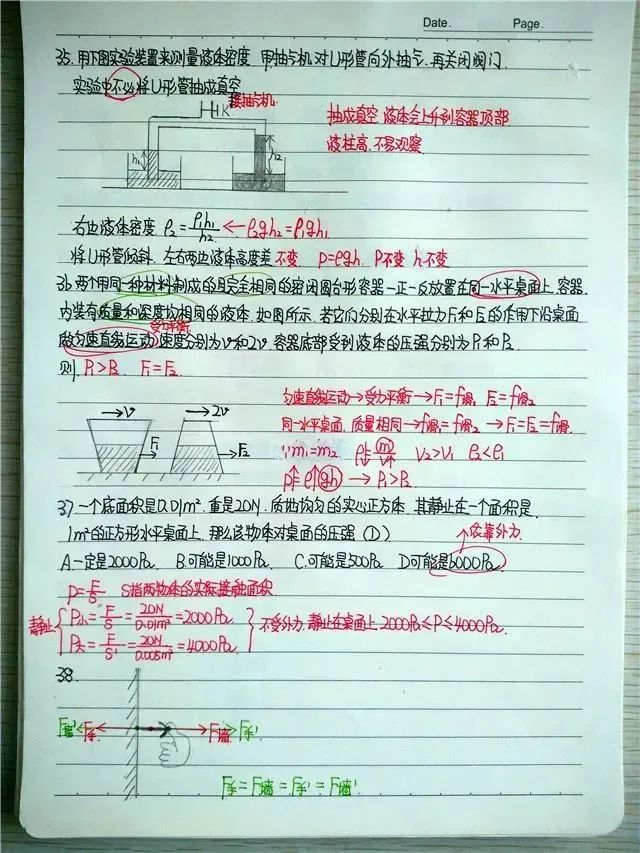 Date. Page.
35. 用下图实验装置来测量液体密度 用抽气机对U形管向外抽气. 再关闭阀门.
实验中不必将U形管抽成真空
接抽气机
K
h1
h2
抽成真空 液体会上升到容器顶部
液柱高. 不易观察
右边液体密度 ρ2=ρ1h1/h2 ← ρ2gh2=ρ1gh1
将U形管倾斜. 左右两边液体高度差 不变. P=ρgh. P不变 h不变
36. 两个用同一种材料制成的且完全相同的密闭圆台形容器一正一反放置在同一水平桌面上. 容器.
内装有质量和深度均相同的液体. 如图所示. 若它们分别在水平拉力F1和F2的作用下沿桌面
受力平衡
做匀速直线运动. 速度分别为v和2v. 容器底部受到液体的压强分别为P1和P2.
则. P1>P2. F1=F2.
→v
→2v
F1
F2
匀速直线运动→受力平衡→F1=f滑1 F2=f滑2
同一水平桌面. 质量相同→f滑1=f滑2 → F1=F2=f滑.
∵m1=m2. ρ↓=m/V↑ V2>V1 ρ2<ρ1
P↑=ρ↑gh → P1>P2.
37. 一个底面积是0.01m². 重是20N. 质地均匀的实心正方体. 其静止在一个面积是
1m²的正方形水平桌面上. 那么该物体对桌面的压强 (D)
依靠外力.
A.一定是2000Pa. B.可能是1000Pa. C.可能是500Pa D可能是6000Pa.
P=F/S S指两物体的实际接触面积
静止
P小=F/S=20N/0.01m²=2000Pa.
P大=F/S'=20N/0.005m²=4000Pa.
不受外力. 静止在桌面上. 2000Pa≤P≤4000Pa.
38.
F墙' F手 F墙 F手'
F手=F墙=F手'=F墙'